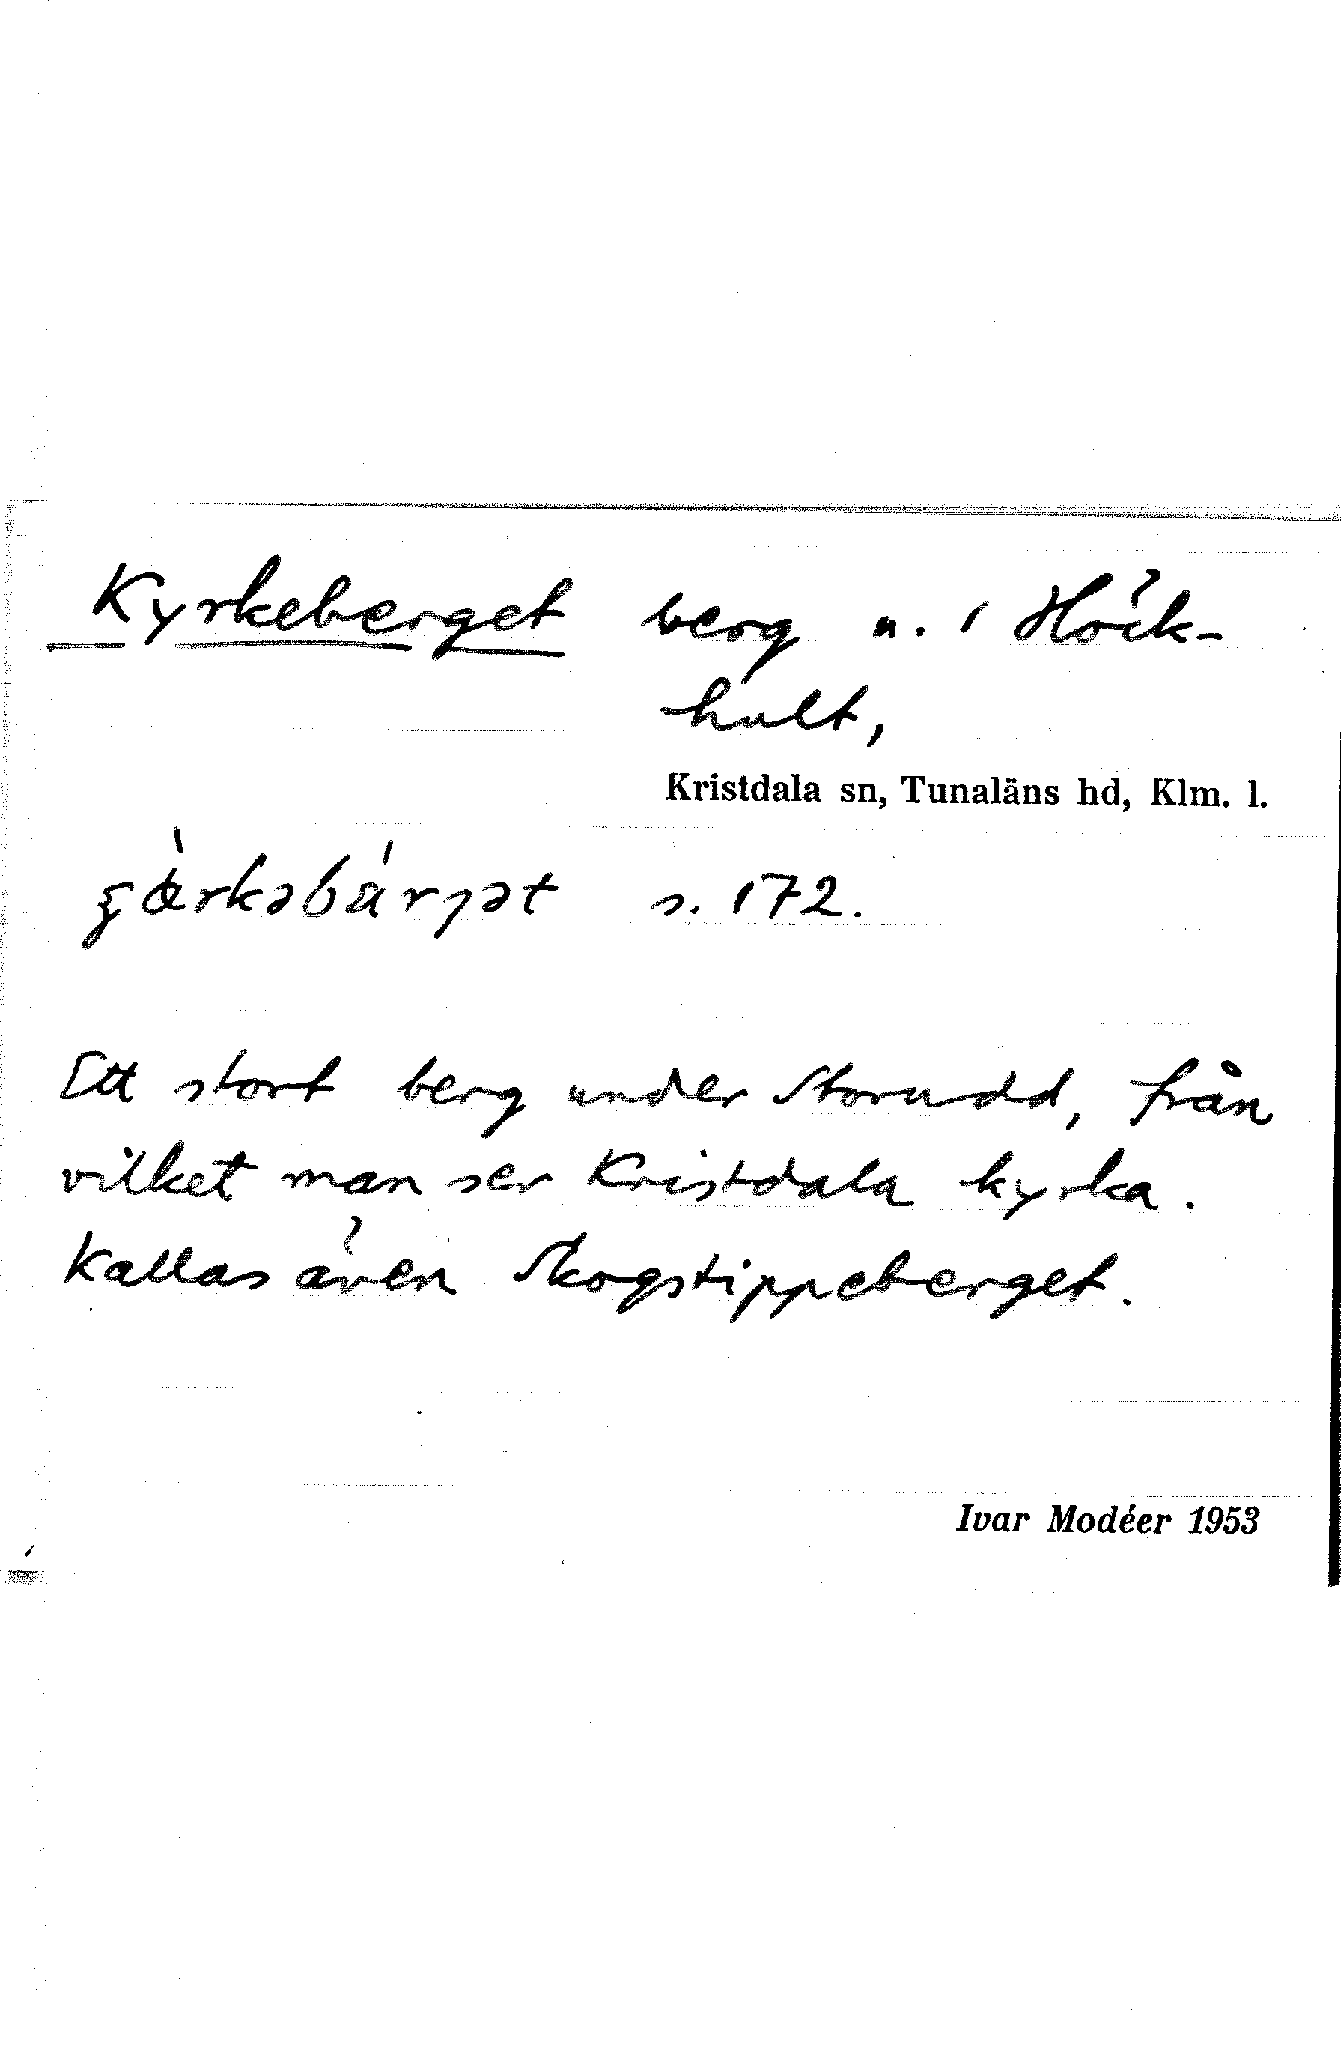 Kyrkeberget berg n. 1 Hök-
hult,
Kristdala sn, Tunaläns hd, Klm. l.
s. 172.
Ett stort berg under Storudd, från
vilket man ser Kristdala kyrka.
Kallas även Skogstippeberget.
Ivar Modéer 1953